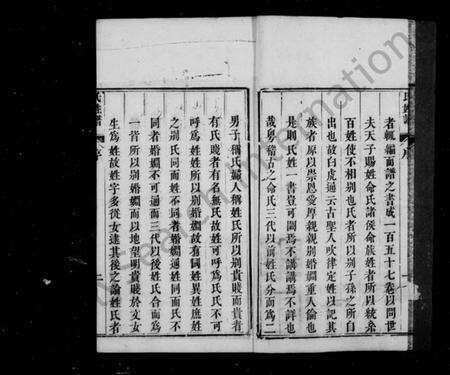 者輒編而譜之書成一百五十七卷以問世
夫天子賜姓命氏諸侯命族姓者所以統系
百姓使不相別也氏者所以別子孫之所自
出也故白虎通云古聖人吹律定姓以記其
族者原以崇恩愛厚親親別婚姻重人倫也
是則氏姓一書豈可闕焉不講講焉不詳也
哉粵稽古之命氏三代以前姓氏分而爲二
男子稱氏婦人稱姓氏所以別貴賤而貴者
有氏賤者有名無氏故姓可呼爲氏氏不可
呼爲姓姓所以別婚姻故有同姓異姓庶姓
之別氏同而姓不同者婚姻通姓同而氏不
同者婚姻不可通而三代以後姓氏合而爲
一皆所以別婚姻而以地望明貴賤於文女
生爲姓故姓字多從女逮其後之論姓氏者
氏姓譜
序
二